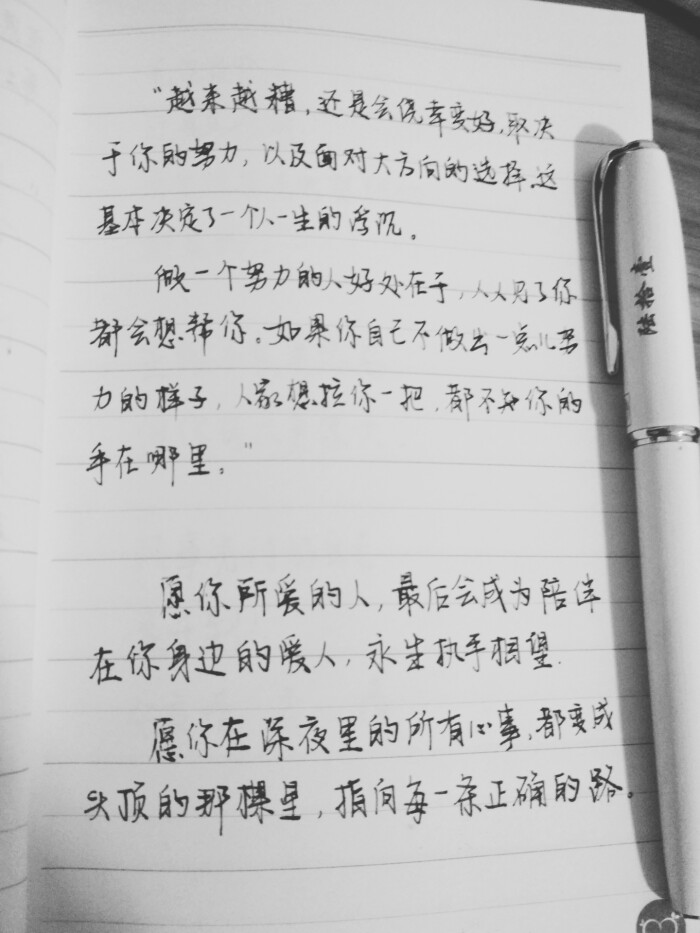 “越来越糟,还是会侥幸变好,取决
于你的努力,以及面对大方向的选择,这
基本决定了一个人一生的浮沉。
做一个努力的人好处在于,人人见了你
都会想帮你。如果你自己不做出一点儿努
力的样子,人家想拉你一把,都不知你的
手在哪里。”
愿你所爱的人,最后会成为陪伴
在你身边的爱人,永生执手相望.
愿你在深夜里的所有心事,都变成
头顶的那棵星,指向每一条正确的路。